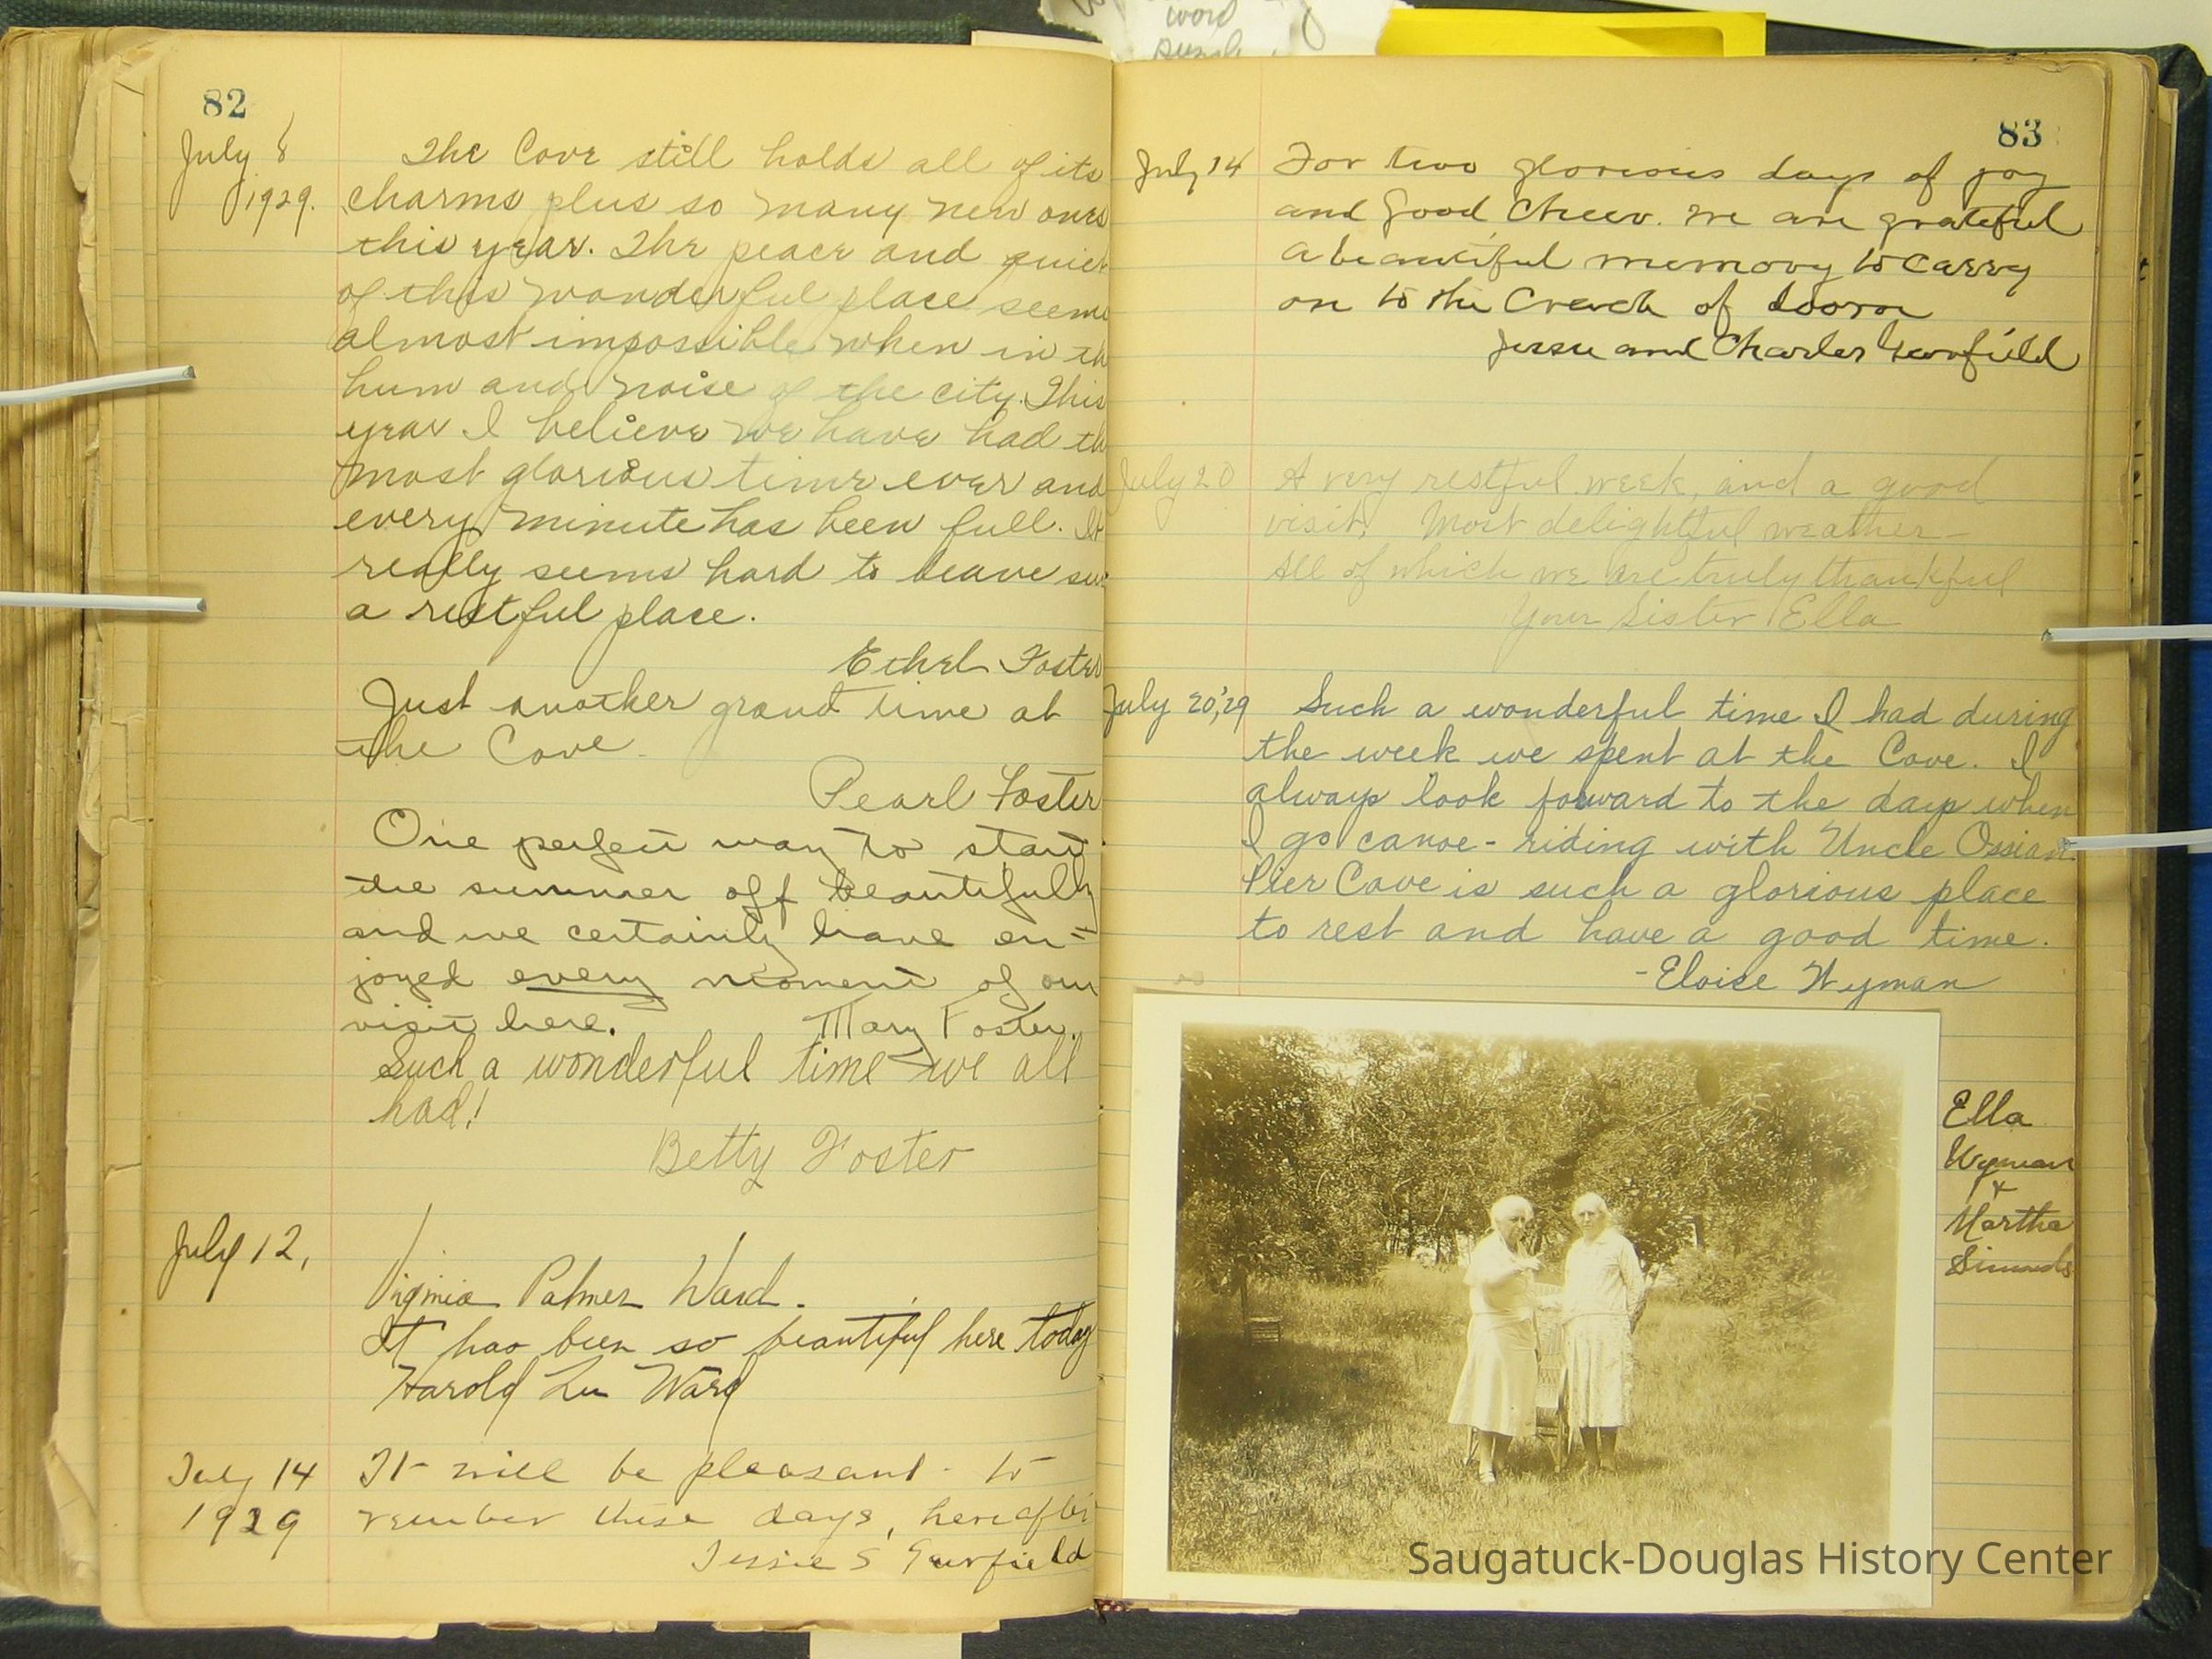 word
82
July 8
1929.
The Cove still holds all of its
charms plus so many new ones
this year. The peace and quiet
of this wonderful place seems
almost impossible when in th
hum and noise of the city. This
year I believe we have had th
most glorious time ever and
every minute has been full. It
really seems hard to leave suc
a restful place.
Ethel Foster
Just another grand time at
the Cove.
Pearl Foster
One perfect way to start
the summer off beautifully
and we certainly have en=
joyed every moment of our
visit here. Mary Foster.
Such a wonderful time we all
had!
Betty Foster
July 12,
Virginia Palmer Ward.
It has been so beautiful here today
Harold Lee Ward
July 14
1929
It will be pleasant to
remember these days, hereafter
Jessie S Garfield
83
July 14 For two glorious days of joy
and Good Cheer. We are grateful
a beautiful memory to carry
on to the Crack of doom
Jessie and Charles Garfield
July 20 A very restful week, and a good
visit. Most delightful weather—
all of which we are truly thankful
Your Sister Ella
July 20,'29 Such a wonderful time I had during
the week we spent at the Cove. I
always look forward to the days when
I go canoe-riding with Uncle Ossian.
Pier Cove is such a glorious place
to rest and have a good time.
-Eloise Wyman
Ella
Wyman
+
Martha
Simonds
Saugatuck-Douglas History Center